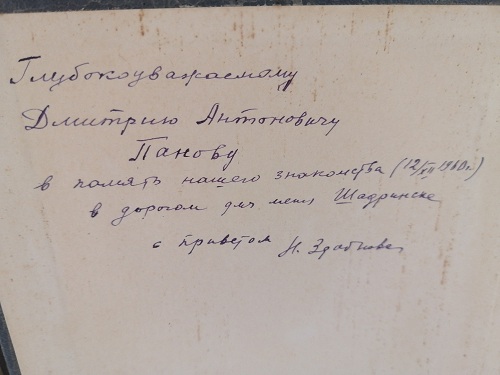 Глубокоуважаемому
Дмитрию Антоновичу
Панову
в память нашего знакомства (12/XII 1960 г.)
в дорогом для меня Шадринске
с приветом Н.